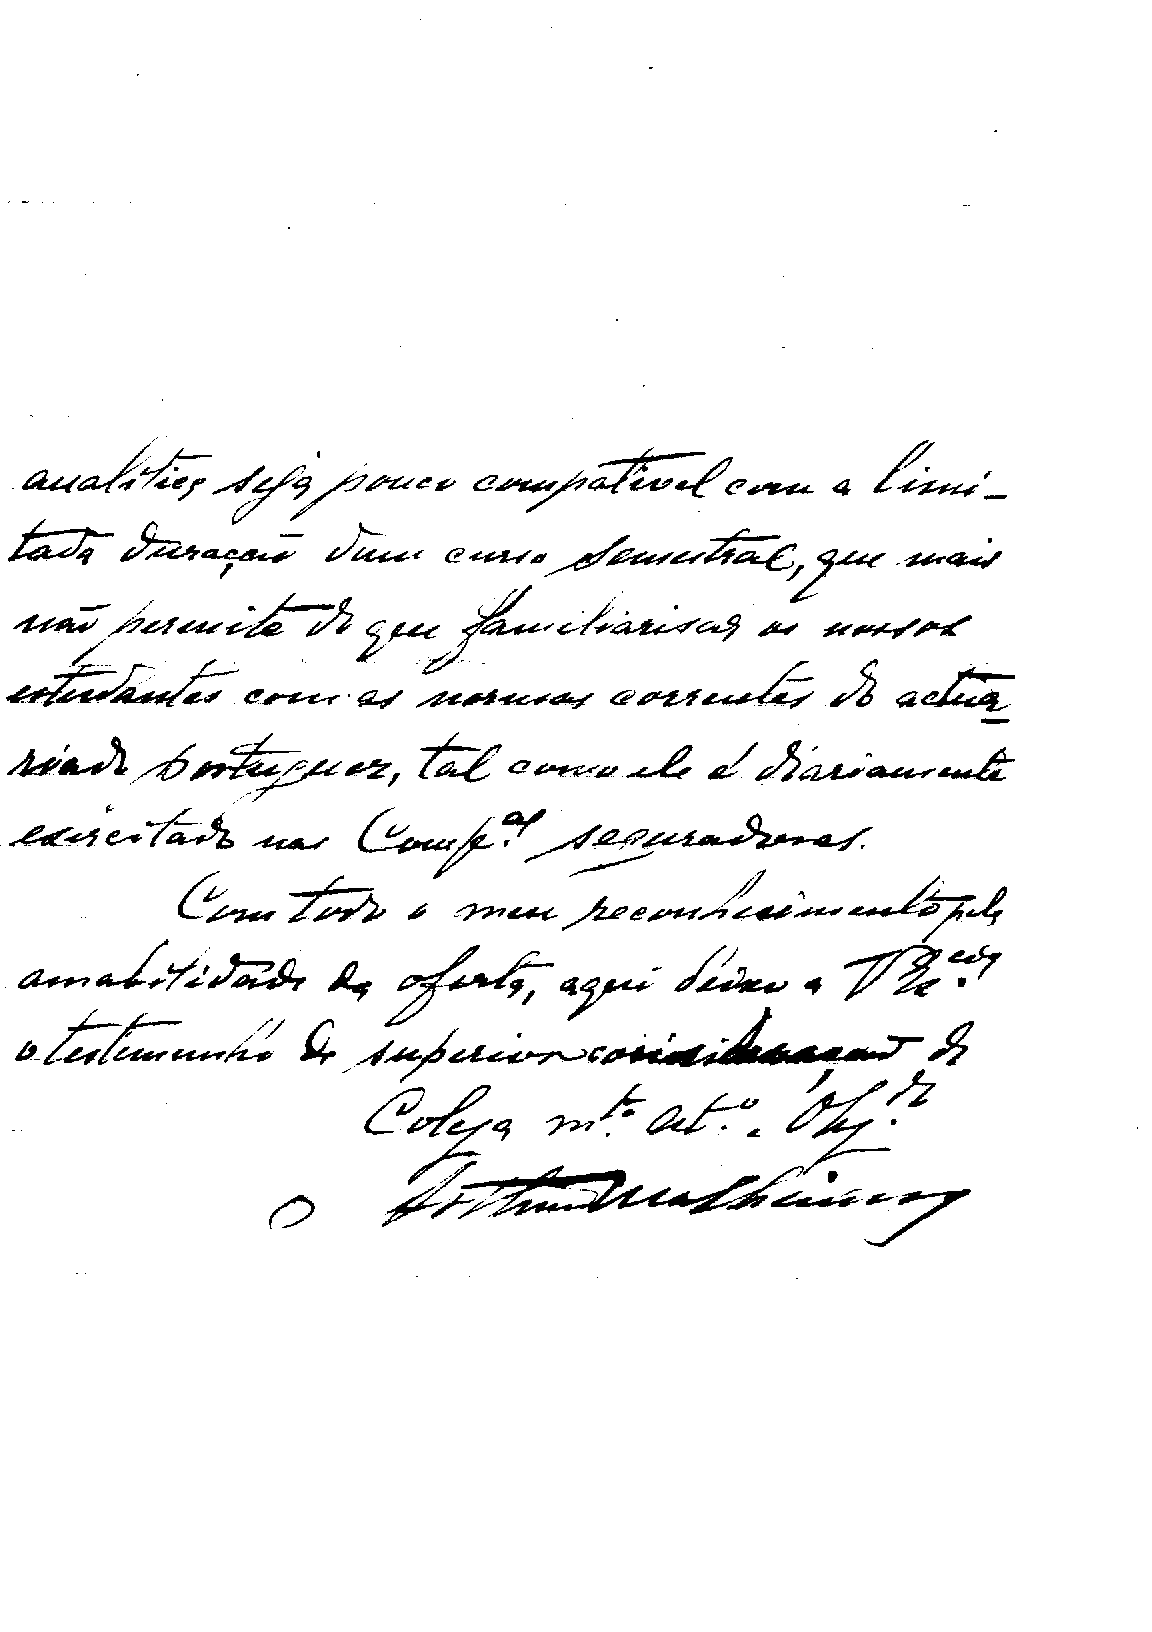 analitica seja pouco compativel com a limi-
tada duração dum curso semestral, que mais
não permite do que familiarisar os nossos
estudantes com as normas correntes do actua-
riado português, tal como ele é diariamente
exercitado nas Comp.as seguradoras.
Com todo o meu reconhecimento pela
amabilidade da oferta, aqui deixo a V. Ex.cia
o testemunho de superior consideração de
Colega m.to at.o e Obg.do